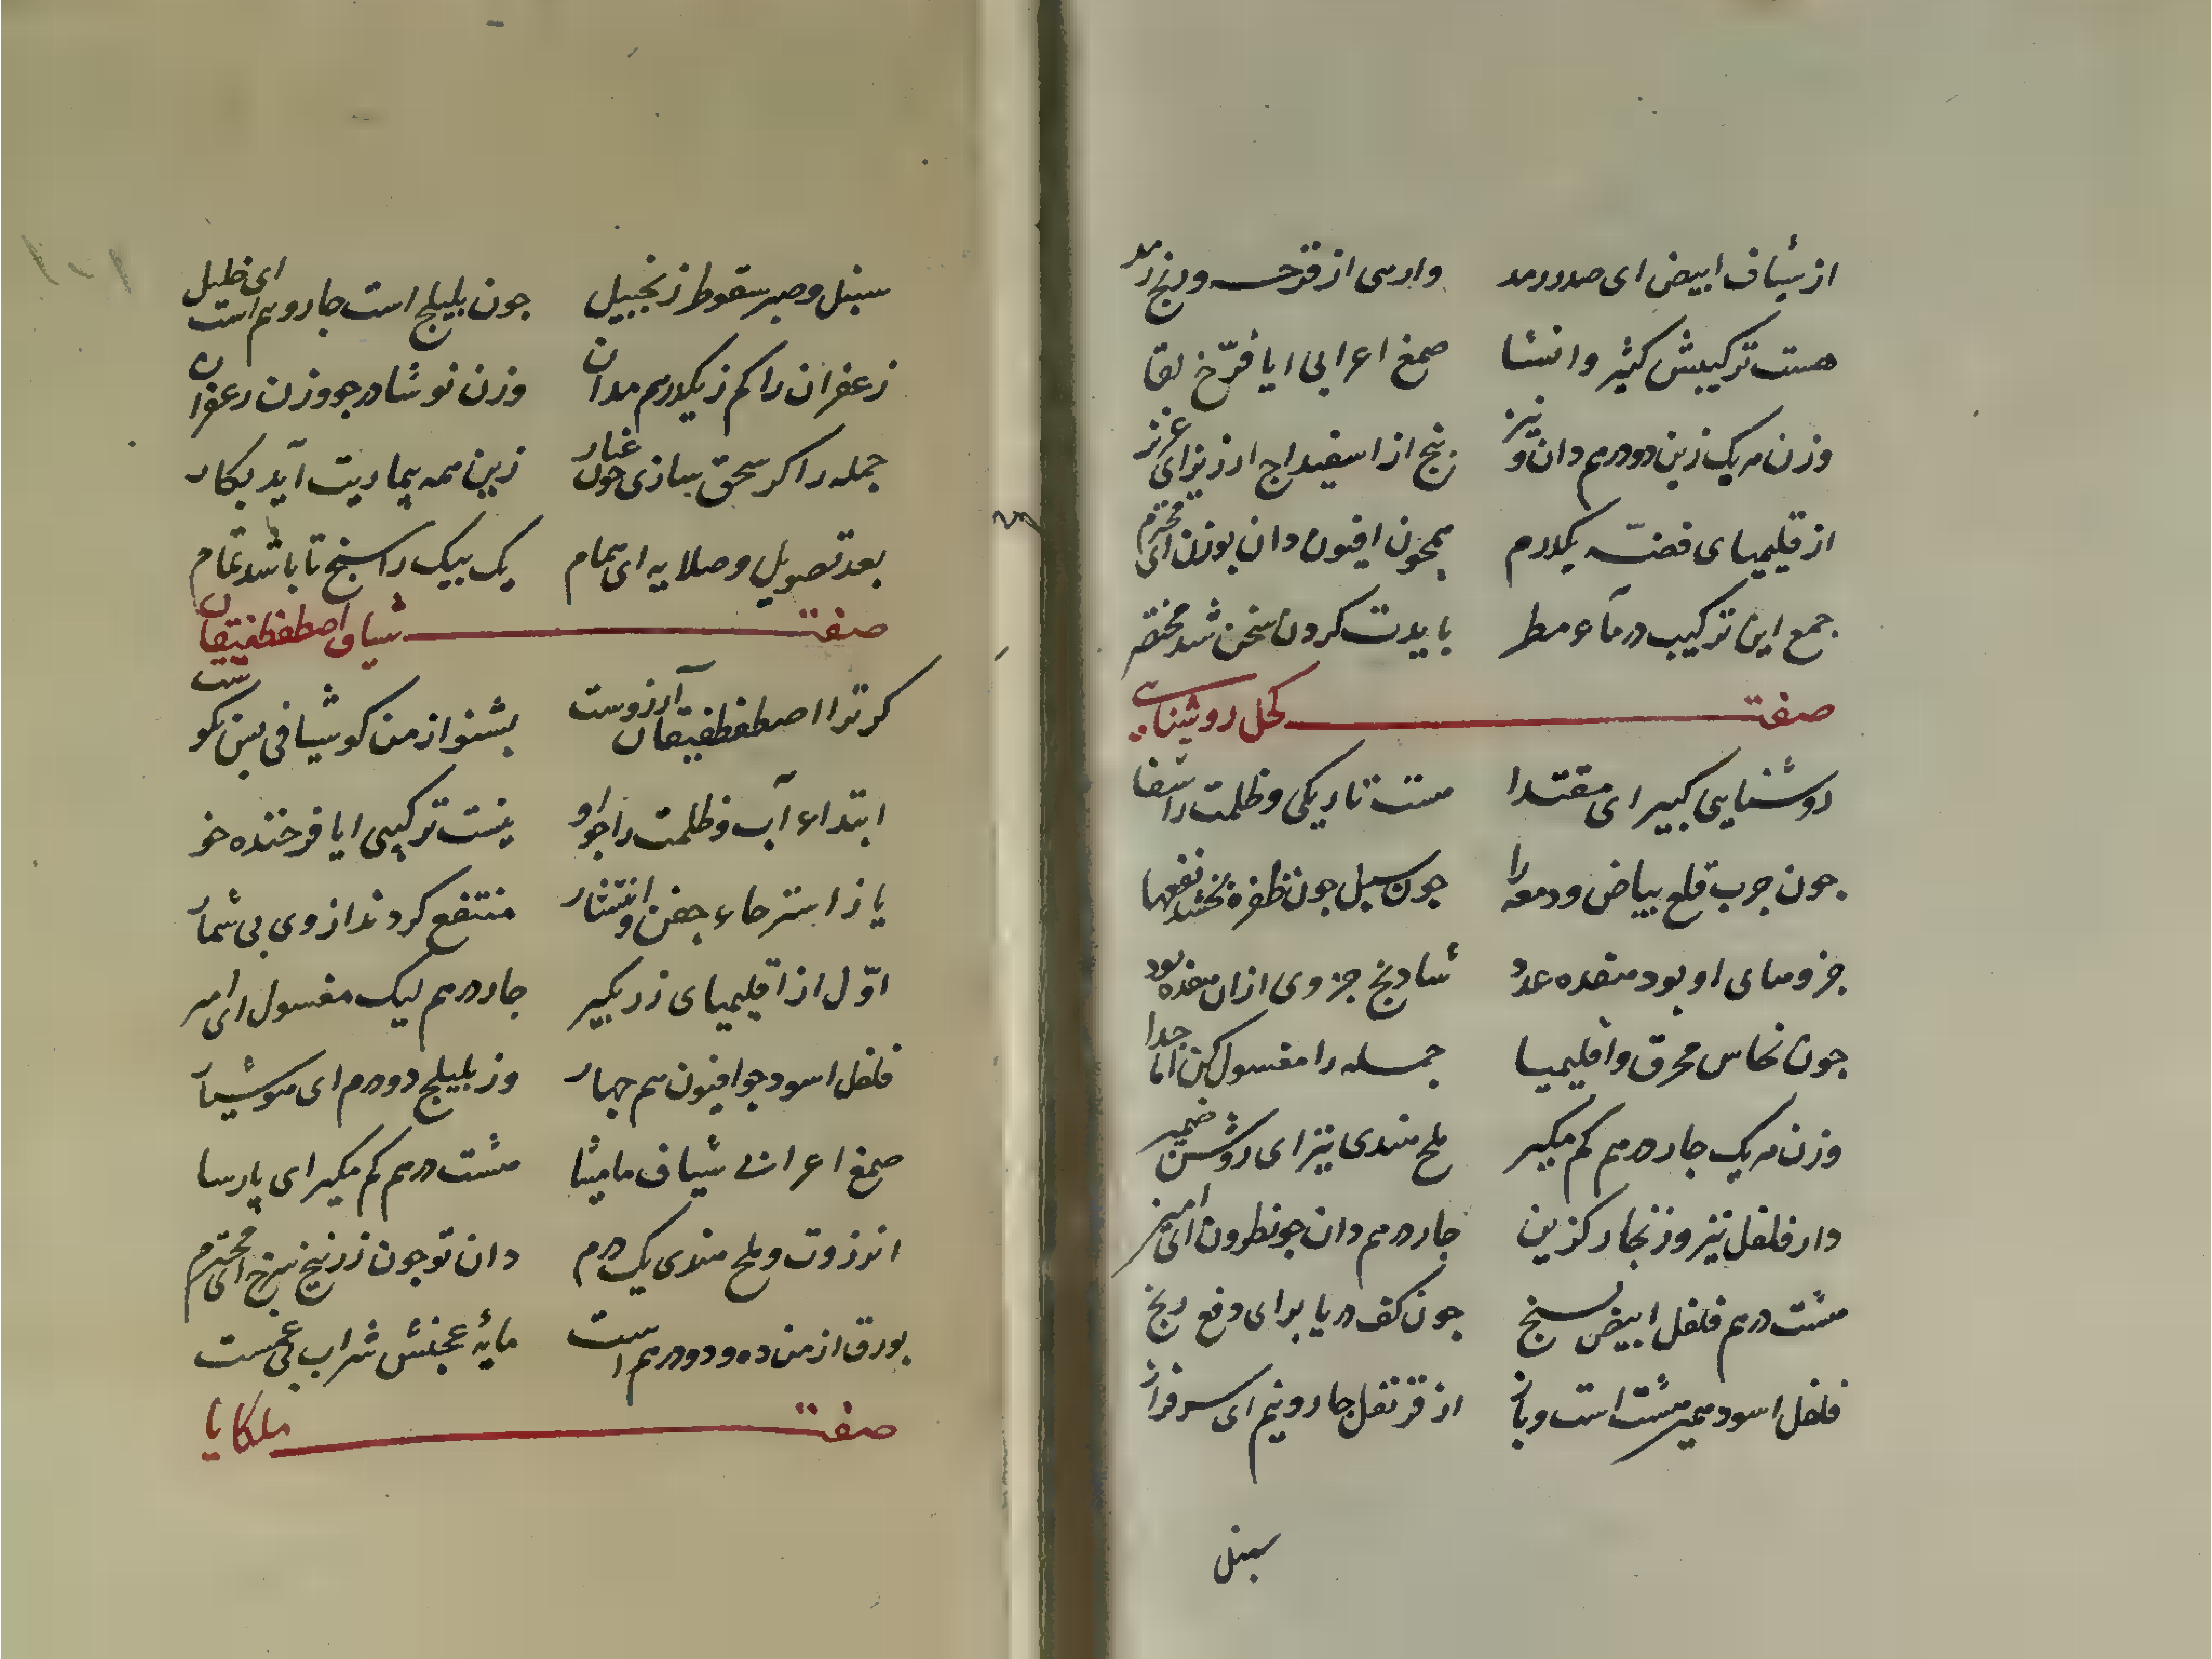 از شیاف ابیض ای صدر رمد وارسی از قرحه و رنج رمد
هست ترکیبش کثیر وانشا صمغ اعرابی ایا فرّخ لقا
وزن هریک زین دو درهم دان و نیز پنج از اسفیداج ارزیز ای عزیز
از قلیمیای فضّه یکدرم همچون افیون دان بوزن ای محترم
جمع این ترکیب در مآء مطر بایدت کردن سخن شد مختصر
صفت کحل روشنایی
روشنایی کبیر ای مقتدا هست تاریکی و ظلمت را شفا
جون جرب قلع بیاض و دمعه را جون سبل جون ظفره بخشد نفعها
جزوهای او بود هفده عدد شادنج جزوی ازان هفده بود
جون نحاس محرق و اقلیمیا جمله را مغسول کن اما جدا
وزن هریک جار درهم کم مکیر ملح هندی نیز ای روشن ضمیر
دار فلفل نیز و زنجار کزین جار درهم دان جو نطرون ای امین
هشت درهم فلفل ابیض بسنج جون کف دریا برای دفع رنج
فلفل اسود همیر هشت است و باز از قرنفل جار و نیم ای سرفراز
سنبل
سنبل و صبر سقوطر زنجبیل جون بلیلج است جار و هم است ای خلیل
زعفران را کم ز یکدرهم مدان وزن نوشادر جو وزن زعفران
جمله را کر سحق سازی جون غبار زین همه بیماریت آید بکار
بعد تصویل و صلایه ای همام یک بیک را سنج تا باشد تمام
صفت شیاف اصطفطیقان
کر ترا اصطفطیقان آرزوست بشنو از من کو شیافی بس نکوست
ابتداء آب و ظلمت را جو او نیست ترکیبی ایا فرخنده خو
یا ز استرخاء جفن و انتشار منتفع کردند از وی بی شمار
اوّل از اقلیمیای زر بکیر جار درهم لیک مغسول ای امیر
فلفل اسود جو افیون هم جهار وز بلیلج دو درم ای هوشیار
صمغ اعرابی شیاف مامیثا هشت درهم کم مکیر ای پارسا
انزروت و ملح هندی یک درم دان تو جون زرنیخ سرخ ای محترم
بورق ارمن ده و دو درهم است مایهٔ عجنش شراب بی غمست
صفت ملکایا